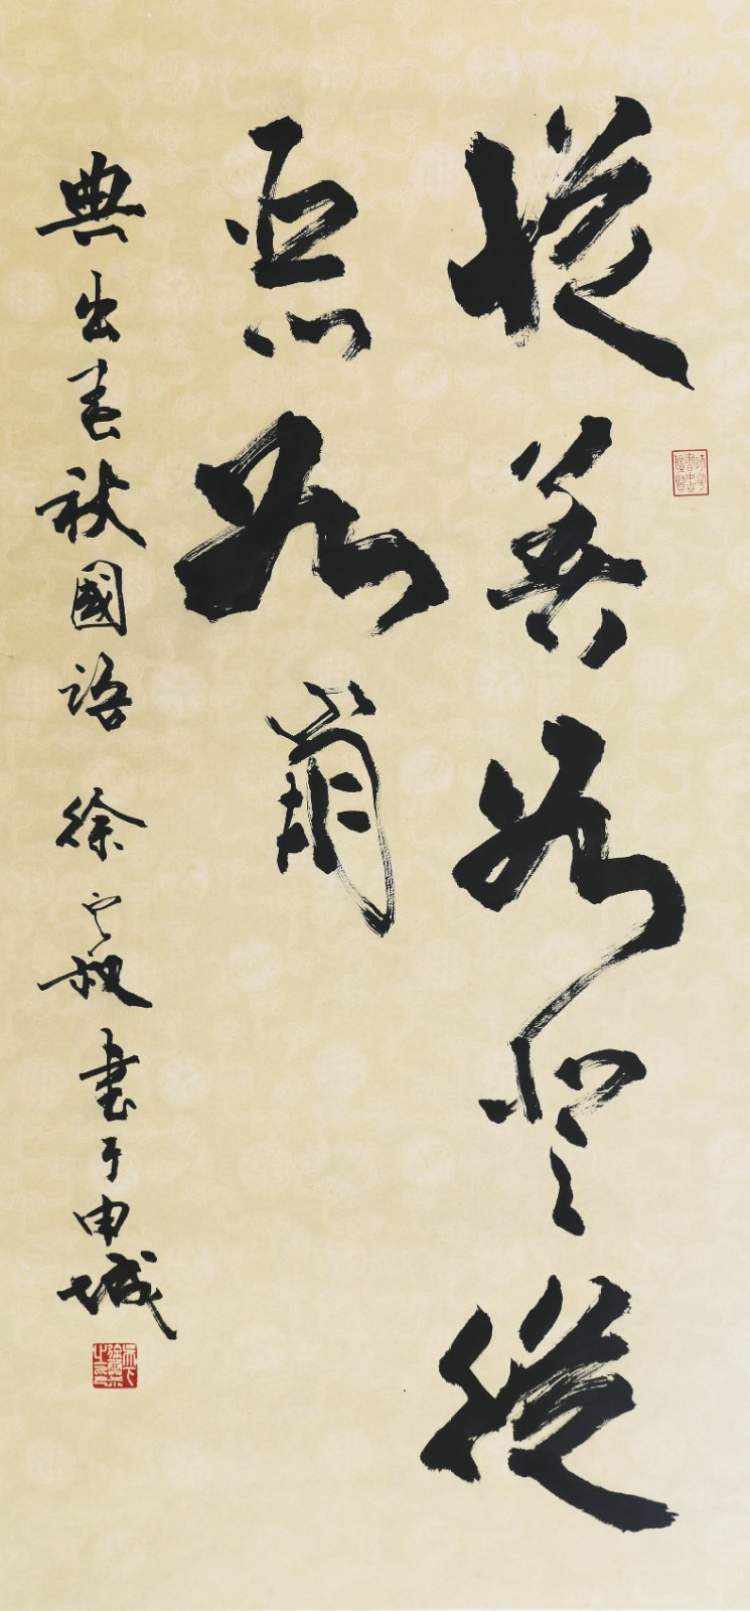 從善如登從
惡如崩
典出春秋國語 徐云叔書于申城